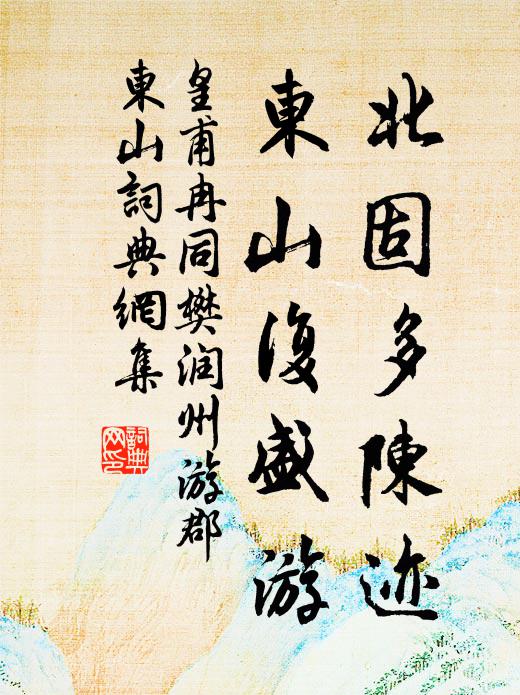 北固多陳迹
東山復盛游
皇甫冉同樊润州游郡
東山詞典網集
詞典
网印